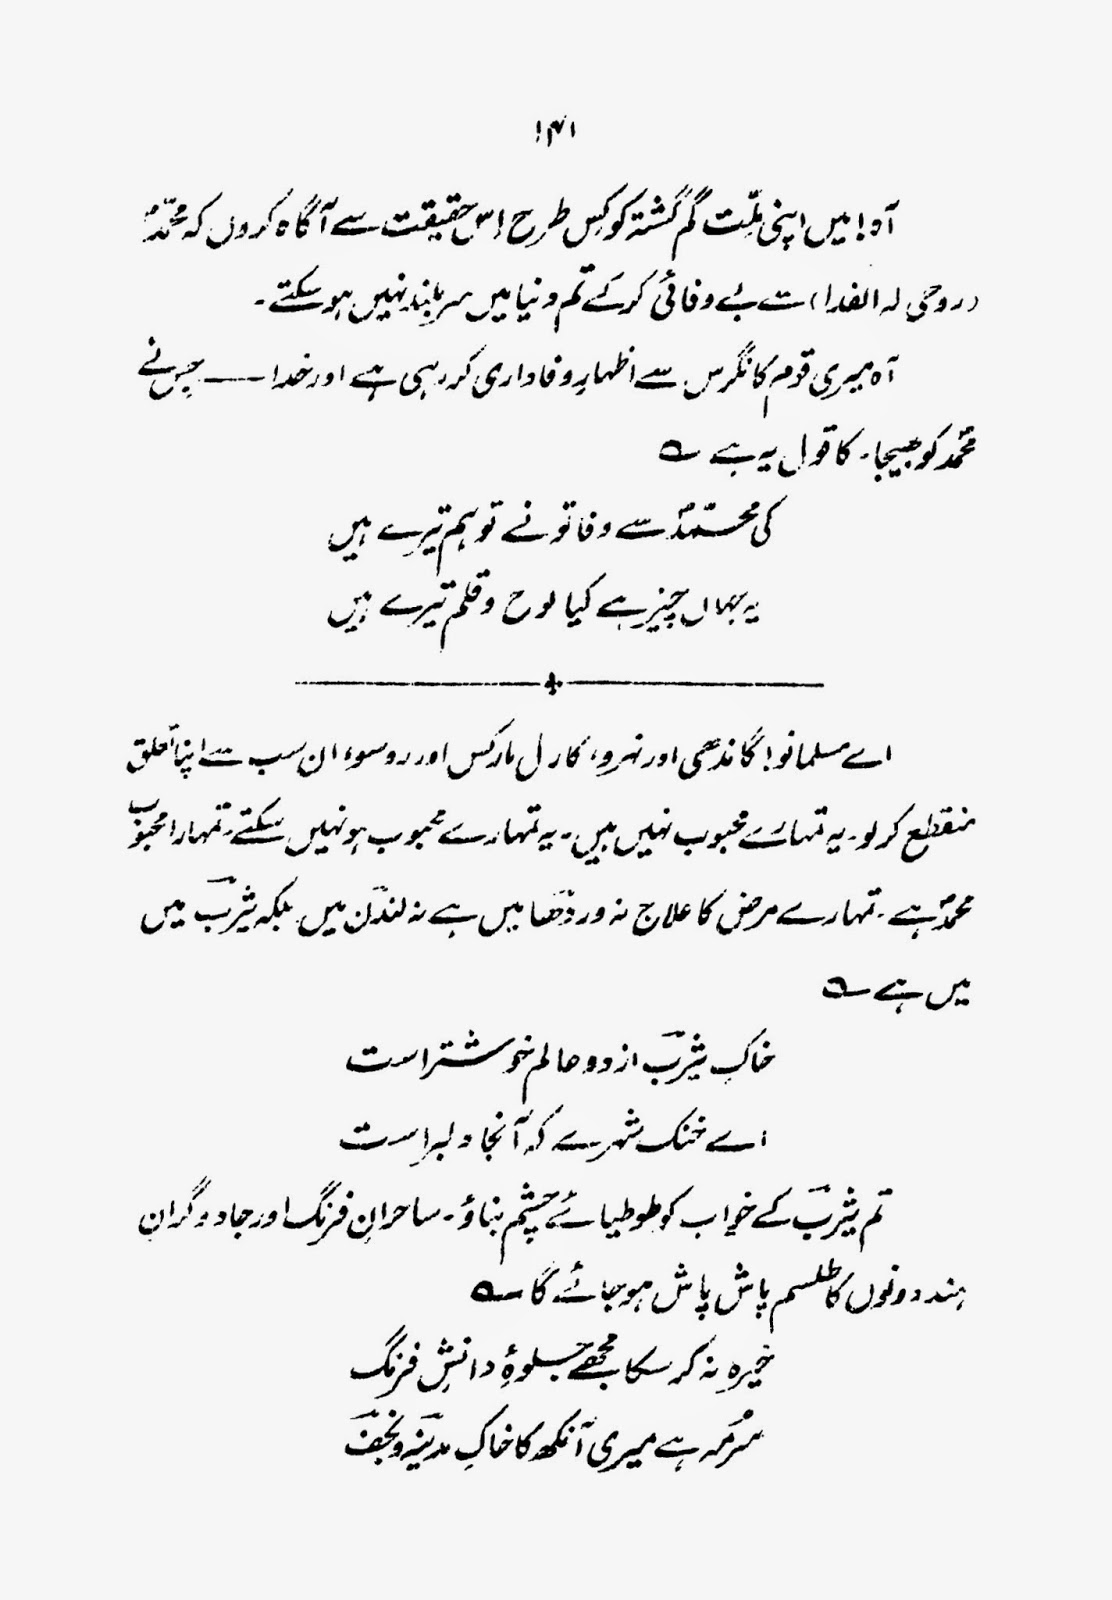 ۱۴۱
آہ! میں اپنی ملّت گم گشتہ کو کس طرح اس حقیقت سے آگاہ کروں کہ محمدؐ
(روحی لہ الفدا) سے بے وفائی کر کے تم دنیا میں سربلند نہیں ہو سکتے۔
آہ میری قوم کانگرس سے اظہارِ وفاداری کر رہی ہے اور خدا —— جس نے
محمدؐ کو بھیجا۔ کا قول یہ ہے ؎
کی محمدؐ سے وفا تو نے تو ہم تیرے ہیں
یہ جہاں چیز ہے کیا لوح و قلم تیرے ہیں
اے مسلمانو! گاندھی اور نہرو، کارل مارکس اور روسو، ان سب سے اپنا تعلق
منقطع کر لو۔ یہ تمہارے محبوب نہیں ہیں۔ یہ تمہارے محبوب ہو نہیں سکتے۔ تمہارا محبوب
محمدؐ ہے۔ تمہارے مرض کا علاج نہ وردھا میں ہے نہ لندن میں بلکہ یثرب میں
میں ہے ؎
خاکِ یثرب از دو عالم خوشتر است
اے خنک شہرے کہ آنجا دلبر است
تم یثرب کے خواب کو طوطیائے چشم بناؤ۔ ساحرانِ فرنگ اور جادوگرانِ
ہند دونوں کا طلسم پاش پاش ہو جائے گا ؎
خیرہ نہ کر سکا مجھے جلوۂ دانشِ فرنگ
سُرمہ ہے میری آنکھ کا خاکِ مدینہ و نجف